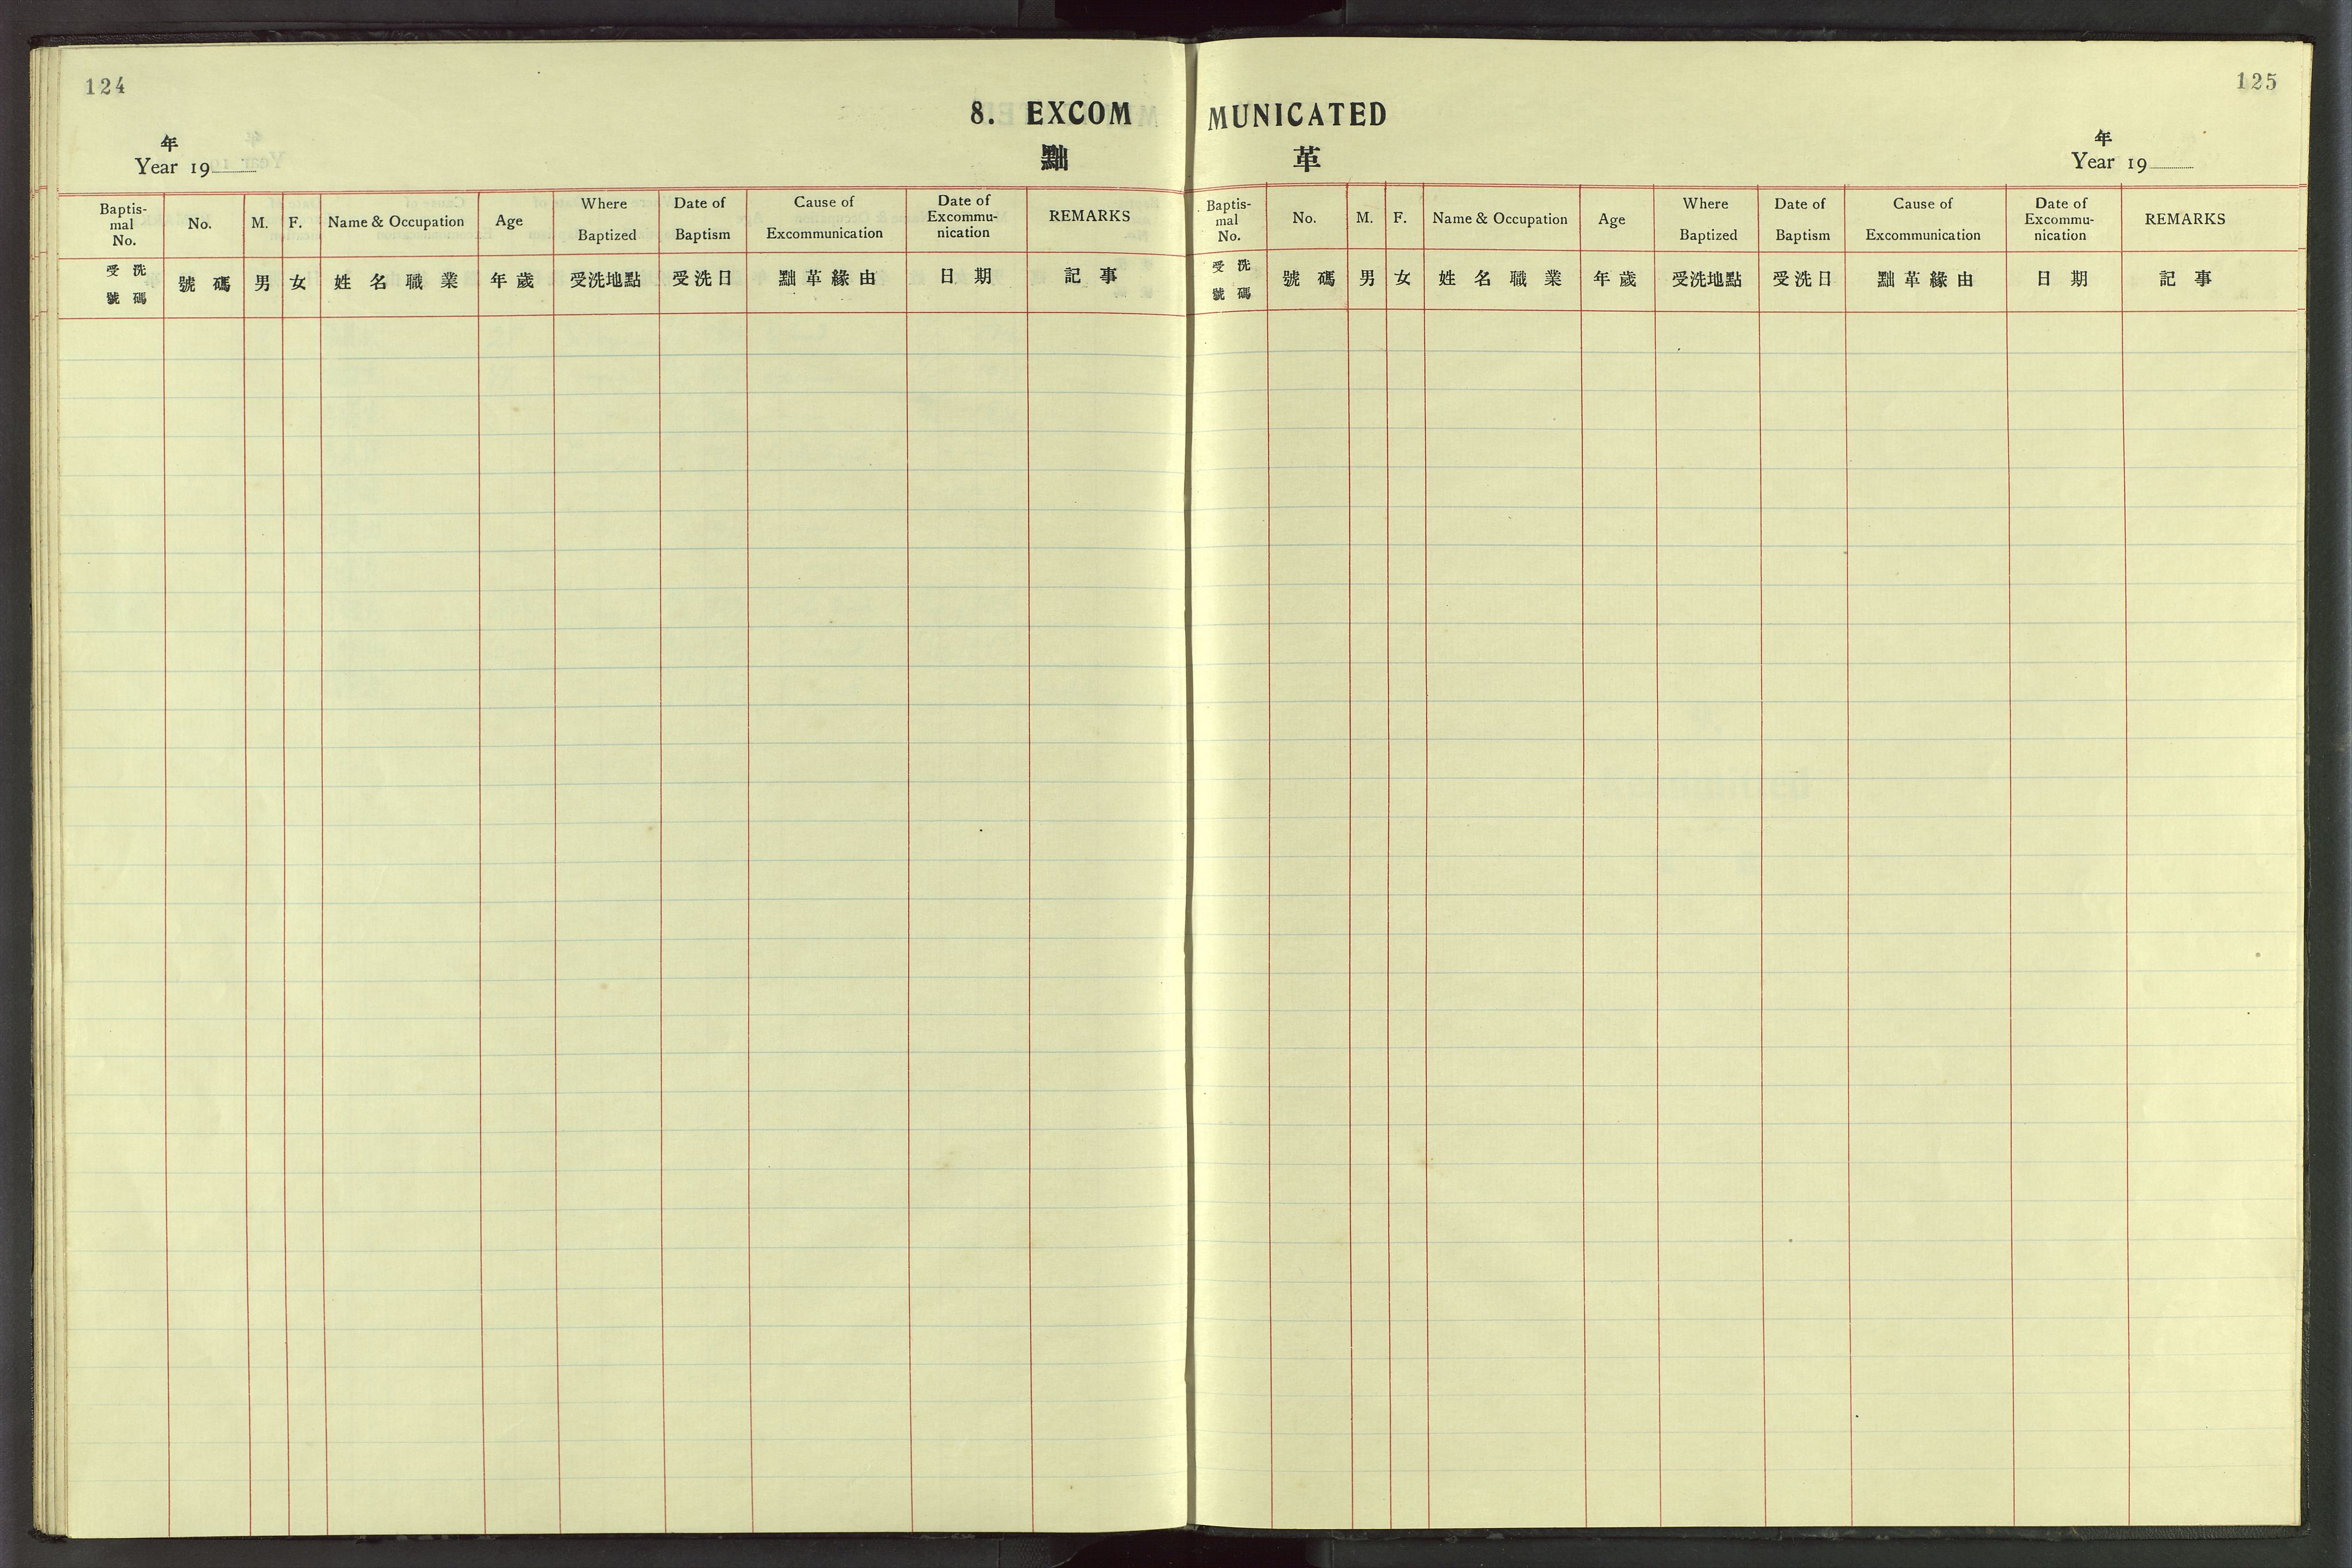 124
125
8. EXCOM MUNICATED
年
Year 19
黜 革
年
Year 19
Baptis-
mal
No.
No.
M.
F.
Name & Occupation
Age
Where
Baptized
Date of
Baptism
Cause of
Excommunication
Date of
Excommu-
nication
REMARKS
受洗
號碼
號碼
男
女
姓名職業
年歲
受洗地點
受洗日
黜革緣由
日期
記事
Baptis-
mal
No.
No.
M.
F.
Name & Occupation
Age
Where
Baptized
Date of
Baptism
Cause of
Excommunication
Date of
Excommu-
nication
REMARKS
受洗
號碼
號碼
男
女
姓名職業
年歲
受洗地點
受洗日
黜革緣由
日期
記事